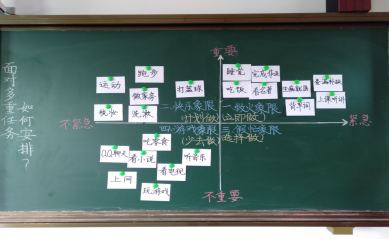 面对多重任务
如何安排？
重要
不重要
不紧急
紧急
跑步
运动
做家务
打篮球
梳妆
洗衣
睡觉
完成作业
吃饭
看名著
生病就医
查漏补缺
背单词
上课听讲
二.快乐象限
(计划做)
一.救火象限
(立即做)
四.游戏象限
(少去做)
三.假忙象限
(选择做)
吃零食
QQ聊天
看小说
听音乐
看电视
上网
玩游戏